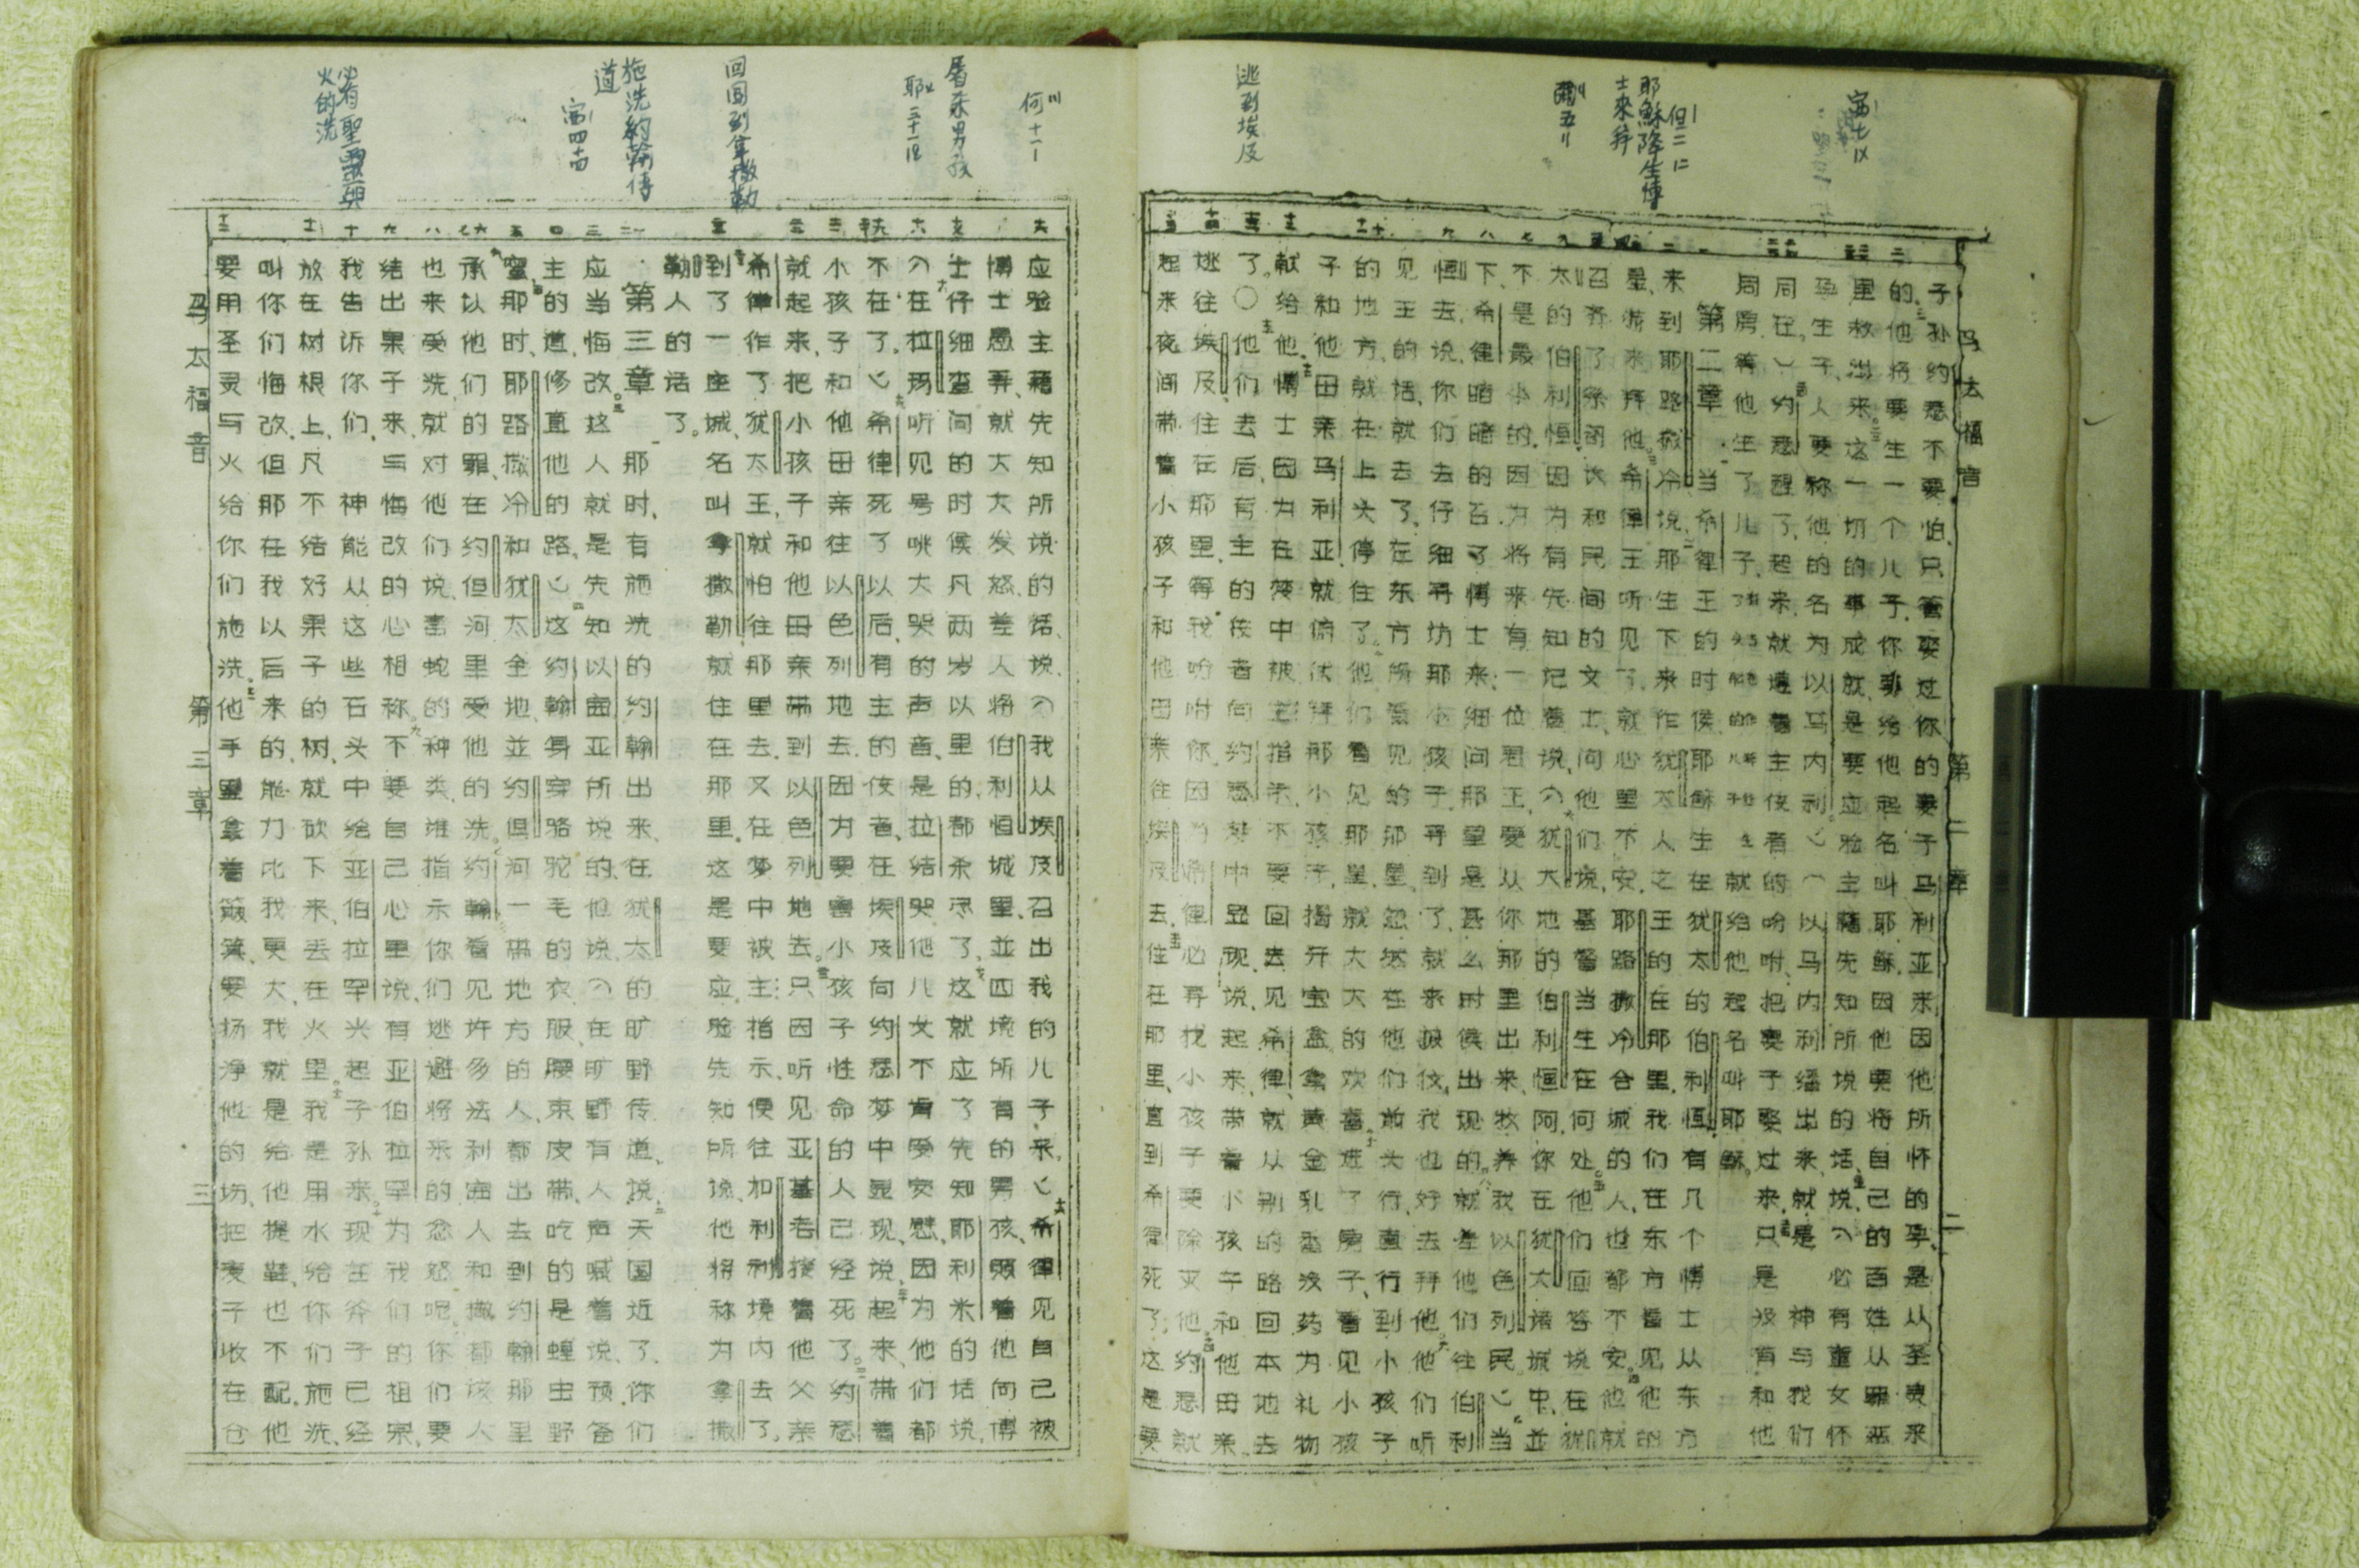 马太福音　第二章　二
赛七
但二
耶穌降生博
士來拜
彌五
逃到埃及
子孙约瑟不要怕只管娶过你的妻子马利亚来因他所怀的孕是从圣灵来
的他将要生一个儿子你要给他起名叫耶稣因他要将自己的百姓从罪恶
里救出来这一切的事成就是要应验主藉先知所说的话说必有童女怀
孕生子人要称他的名为以马内利（以马内利繙出来就是　神与我们
同在）约瑟醒了起来就遵着主使者的吩咐把妻子娶过来只是没有和他
同房等他生了儿子就给他起名叫耶稣
第二章　当希律王的时候耶稣生在犹太的伯利恒有几个博士从东方
来到耶路撒冷说那生下来作犹太人之王的在那里我们在东方看见他的
星特来拜他希律王听见了就心里不安耶路撒冷合城的人也都不安他就
召齐了祭司长和民间的文士问他们说基督当生在何处他们回答说在犹
太的伯利恒因为有先知记着说犹大地的伯利恒阿你在犹大诸城中並
不是最小的因为将来有一位君王要从你那里出来牧养我以色列民当
下希律暗暗的召了博士来细问那星是甚么时候出现的就差他们往伯利
恒去说你们去仔细寻访那小孩子寻到了就来报信我也好去拜他他们听
见王的话就去了在东方所看见的那星忽然在他们前头行直行到小孩子
的地方就在上头停住了他们看见那星就大大的欢喜进了房子看见小孩
子和他母亲马利亚就俯伏拜那小孩子揭开宝盒拿黄金乳香没药为礼物
献给他博士因为在梦中被主指示不要回去见希律就从别的路回本地去
了〇他们去后有主的使者向约瑟梦中显现说起来带着小孩子和他母亲
逃往埃及住在那里等我吩咐你因为希律必寻找小孩子要除灭他约瑟就
起来夜间带着小孩子和他母亲往埃及去住在那里直到希律死了这是要
何十一
屠杀男孩
耶三十一
回國到拿撒勒
施洗約翰傳
道
賽四十
必有聖靈與
火的洗
应验主藉先知所说的话说我从埃及召出我的儿子来希律见自己被
博士愚弄就大大发怒差人将伯利恒城里並四境所有的男孩照着他向博
士仔细查问的时候凡两岁以里的都杀尽了这就应了先知耶利米的话说
在拉玛听见号咷大哭的声音是拉结哭他儿女不肯受安慰因为他们都
不在了希律死了以后有主的使者在埃及向约瑟梦中显现说起来带着
小孩子和他母亲往以色列地去因为要害小孩子性命的人已经死了约瑟
就起来把小孩子和他母亲带到以色列地去只因听见亚基老接着他父亲
希律作了犹太王就怕往那里去又在梦中被主指示便往加利利境内去了
到了一座城名叫拿撒勒就住在那里这是要应验先知所说他将称为拿撒
勒人的话了
第三章　那时有施洗的约翰出来在犹太的旷野传道说天国近了你们
应当悔改这人就是先知以赛亚所说的他说在旷野有人声喊着说预备
主的道修直他的路这约翰身穿骆驼毛的衣服腰束皮带吃的是蝗虫野
蜜那时耶路撒冷和犹太全地並约但河一带地方的人都出去到约翰那里
承认他们的罪在约但河里受他的洗约翰看见许多法利赛人和撒都该人
也来受洗就对他们说毒蛇的种类谁指示你们逃避将来的忿怒呢你们要
结出果子来与悔改的心相称不要自己心里说有亚伯拉罕为我们的祖宗
我告诉你们　神能从这些石头中给亚伯拉罕兴起子孙来现在斧子已经
放在树根上凡不结好果子的树就砍下来丢在火里我是用水给你们施洗
叫你们悔改但那在我以后来的能力比我更大我就是给他提鞋也不配他
要用圣灵与火给你们施洗他手里拿着簸箕要扬净他的场把麦子收在仓
马太福音　第三章　三